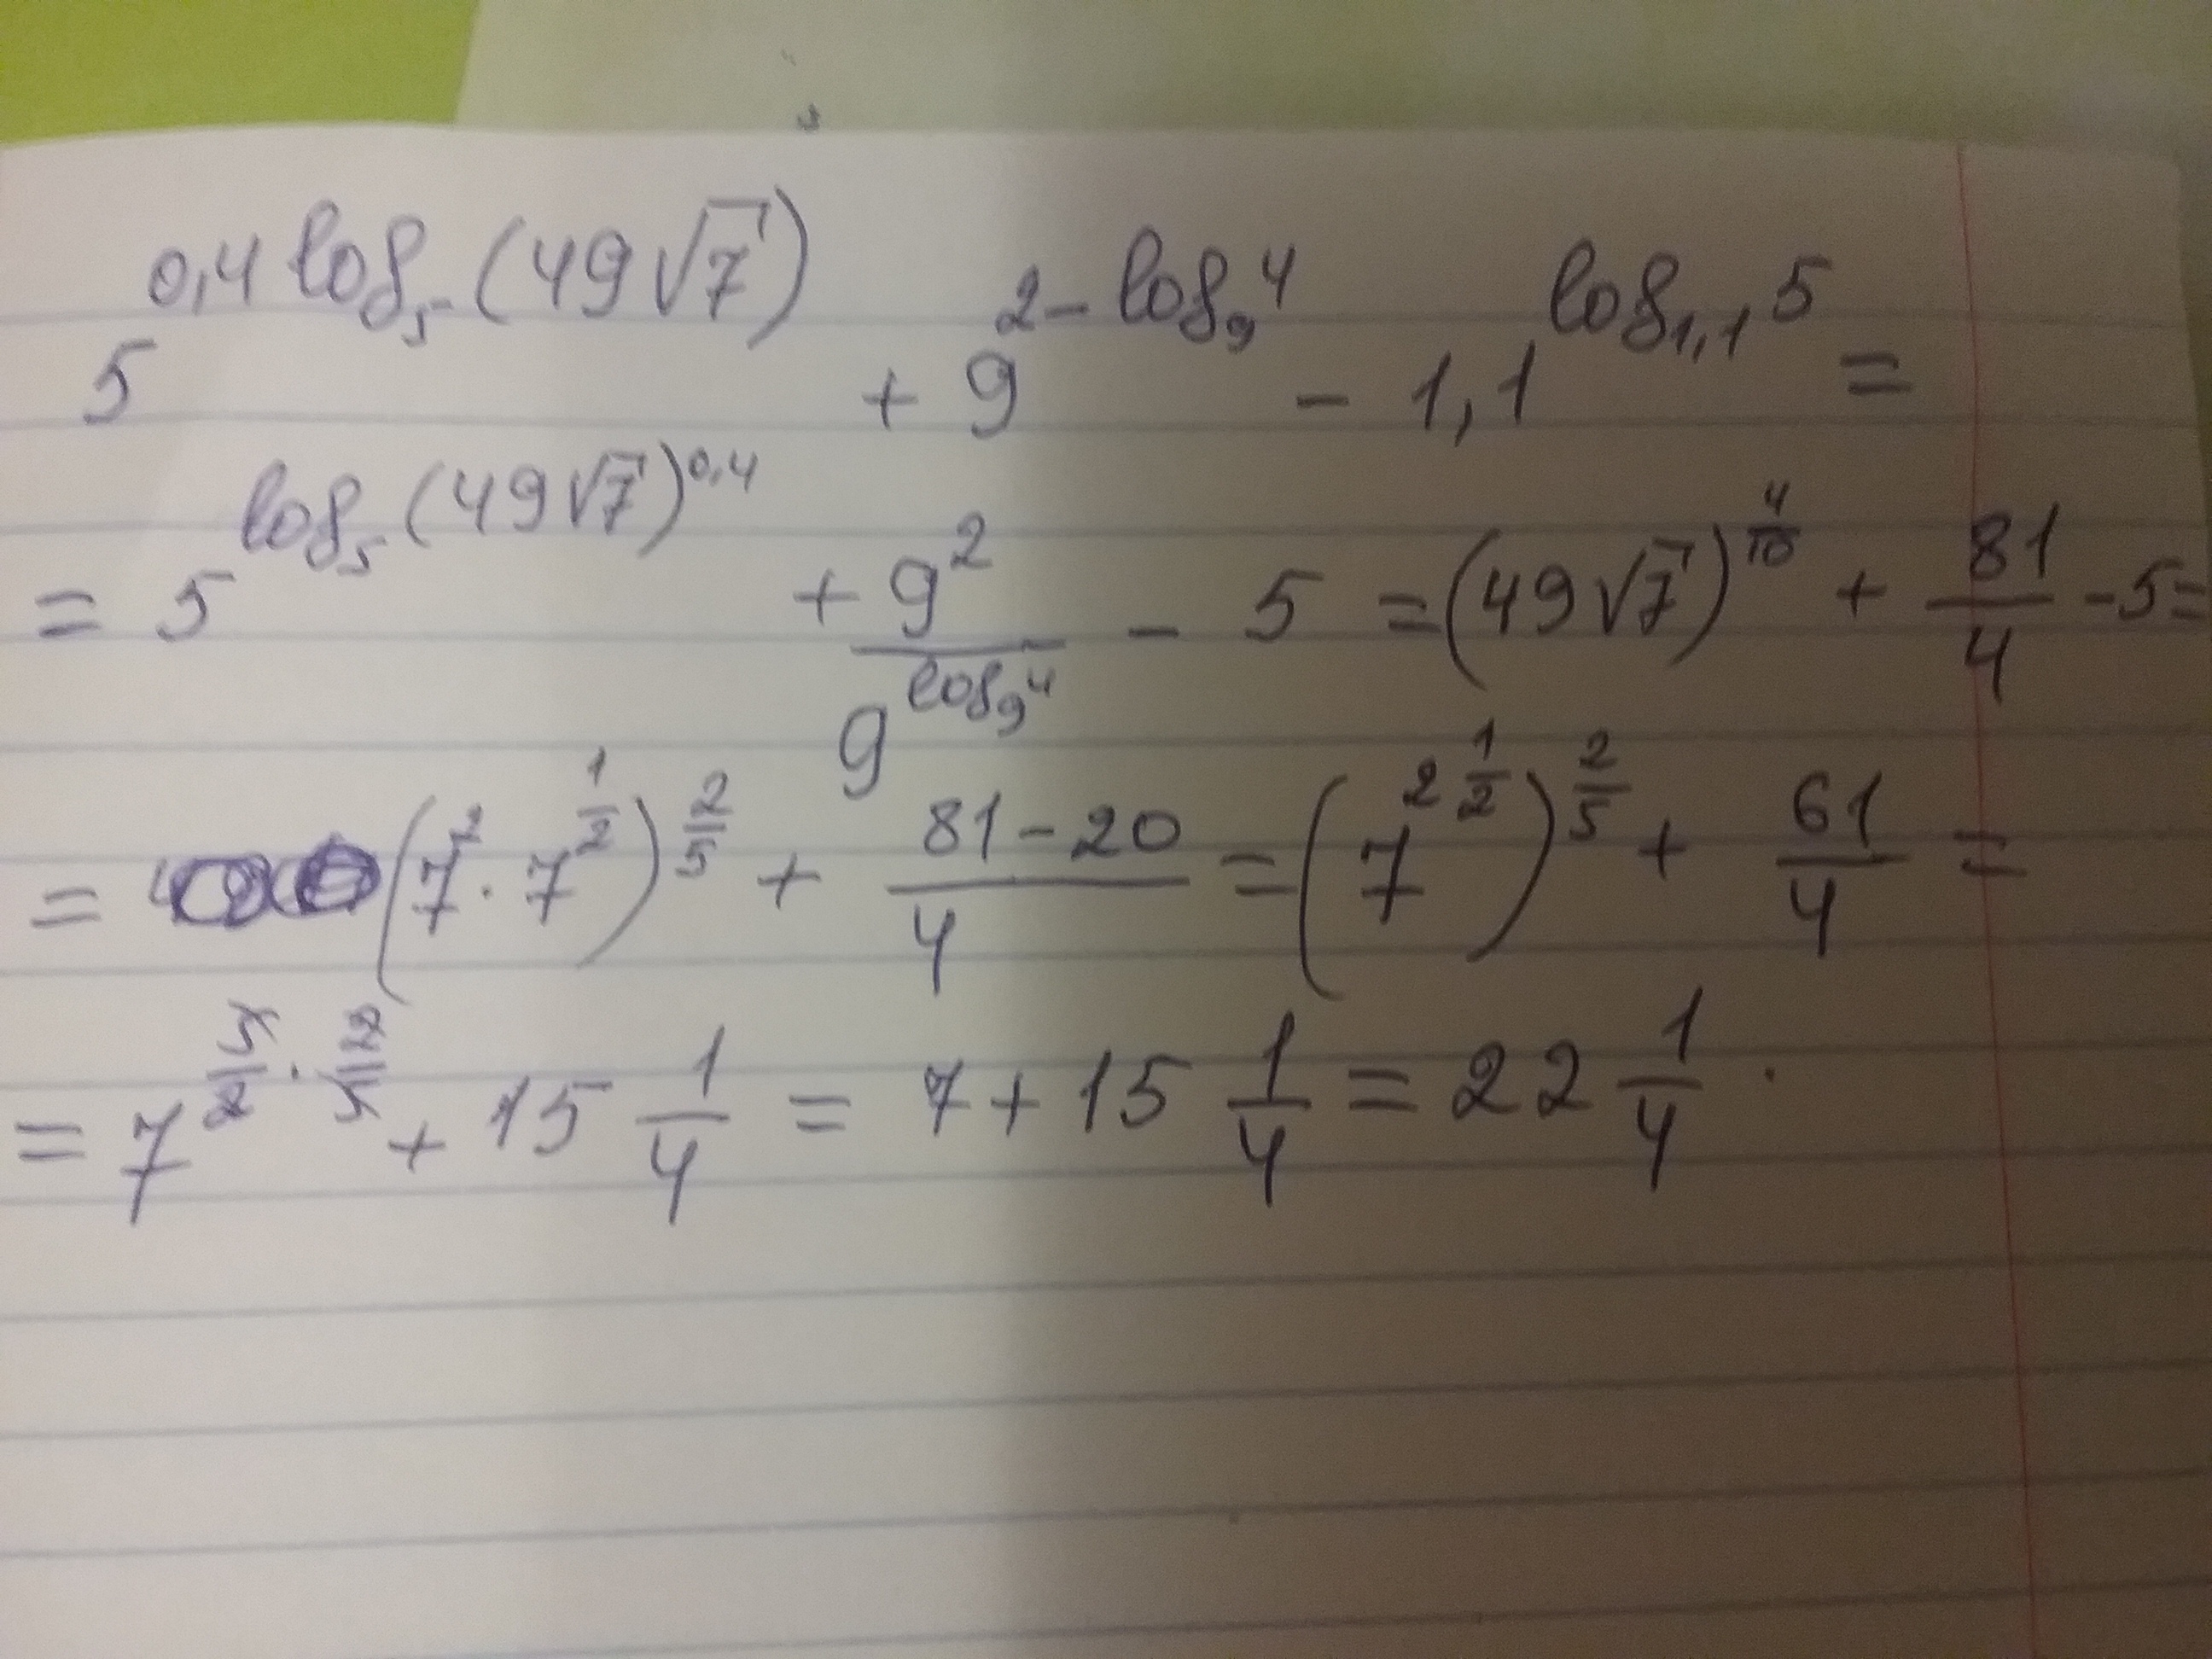 5^{0,4 log_5 (49√7)} + 9^{2 - log_9 4} - 1,1^{log_{1,1} 5} =
= 5^{log_5 (49√7)^{0,4}} + \frac{9^2}{9^{log_9 4}} - 5 = (49√7)^{\frac{4}{10}} + \frac{81}{4} - 5 =
= (7^2 · 7^{\frac{1}{2}})^{\frac{2}{5}} + \frac{81-20}{4} = (7^{2\frac{1}{2}})^{\frac{2}{5}} + \frac{61}{4} =
= 7^{\frac{5}{2} · \frac{2}{5}} + 15\frac{1}{4} = 7 + 15\frac{1}{4} = 22\frac{1}{4}.